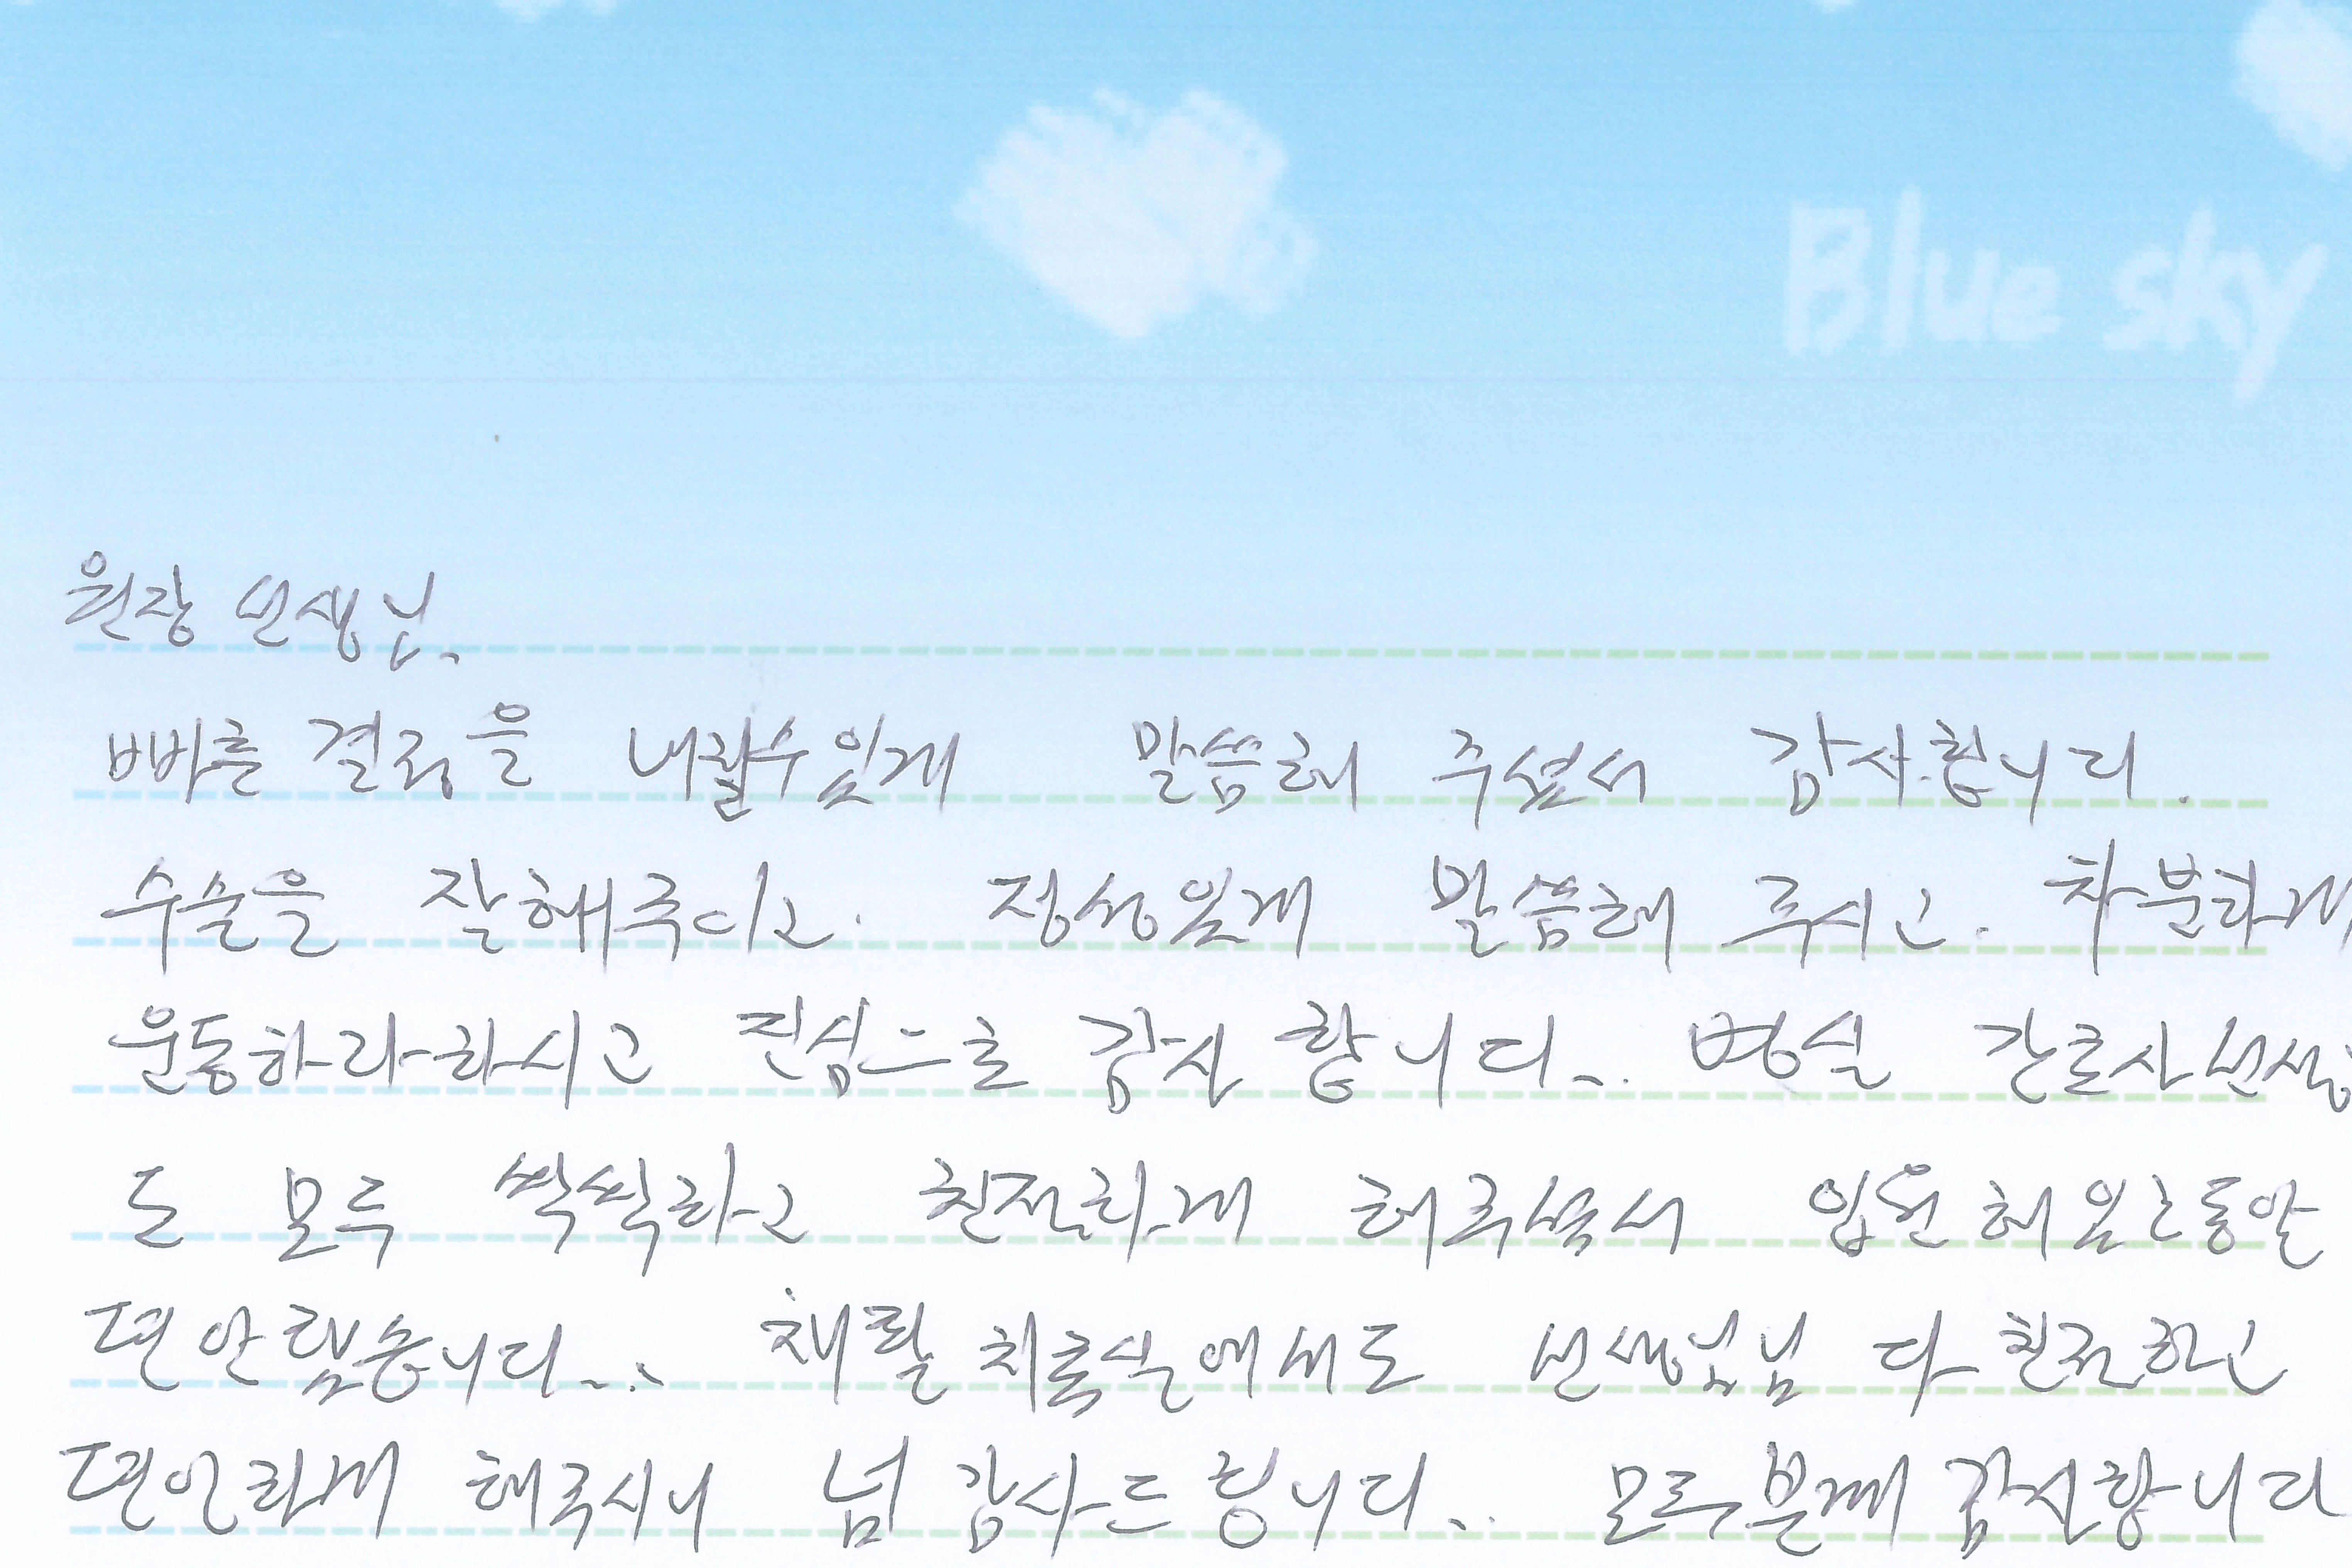 Blue sky
원장 선생님.
빠른 결정을 내릴수있게 말씀해 주셔서 감사합니다.
수술을 잘해주시고. 정성있게 말씀해 주시고. 차분하게
운동하라하시고 진심으로 감사 합니다... 병실 간호사선생
도 모두 싹싹하고 친절하게 해주셔서 입원 해 있는동안
편안했습니다... 재활 치료실에서도 선생님님 다 친절하고
편안하게 해주시니 넘 감사드립니다... 모두분께 감사합니다